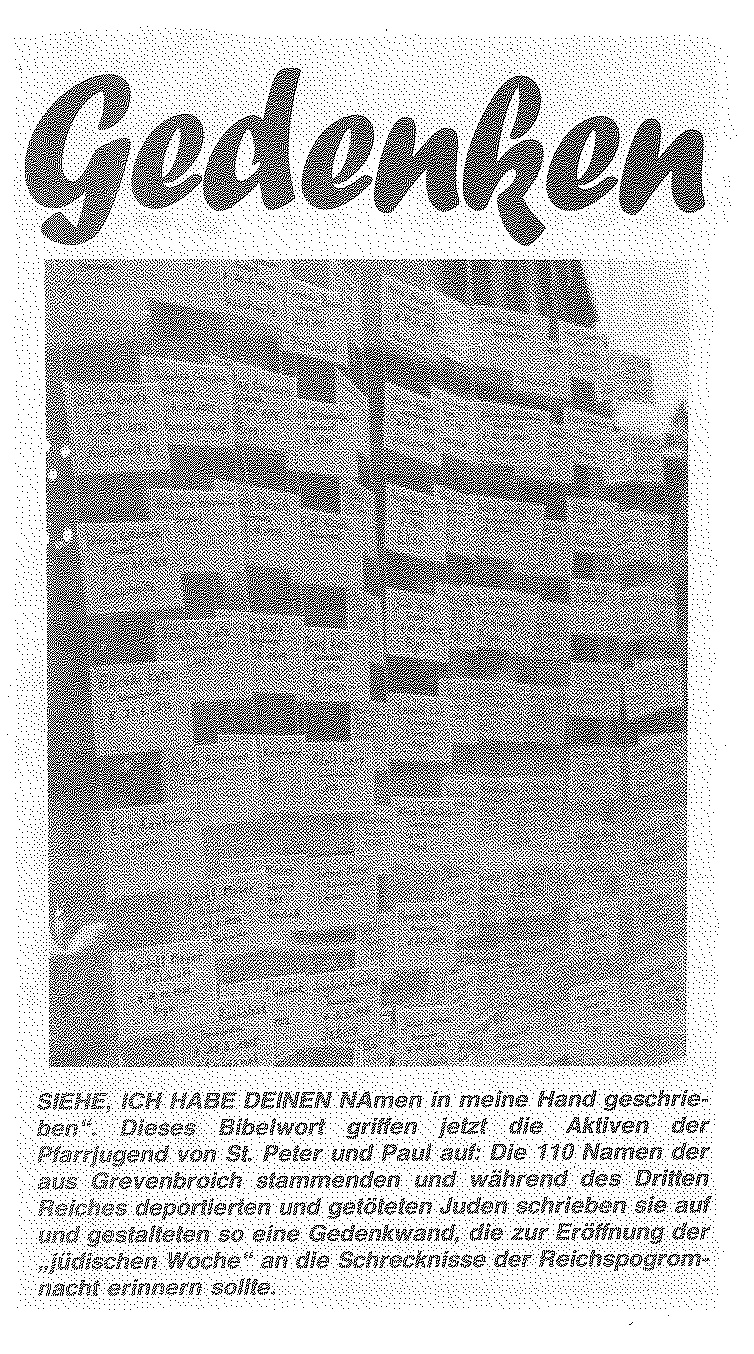 Gedenken
SIEHE, ICH HABE DEINEN NAmen in meine Hand geschrie-
ben“. Dieses Bibelwort griffen jetzt die Aktiven der
Pfarrjugend von St. Peter und Paul auf: Die 110 Namen der
aus Grevenbroich stammenden und während des Dritten
Reiches deportierten und getöteten Juden schrieben sie auf
und gestalteten so eine Gedenkwand, die zur Eröffnung der
„jüdischen Woche“ an die Schrecknisse der Reichspogrom-
nacht erinnern sollte.